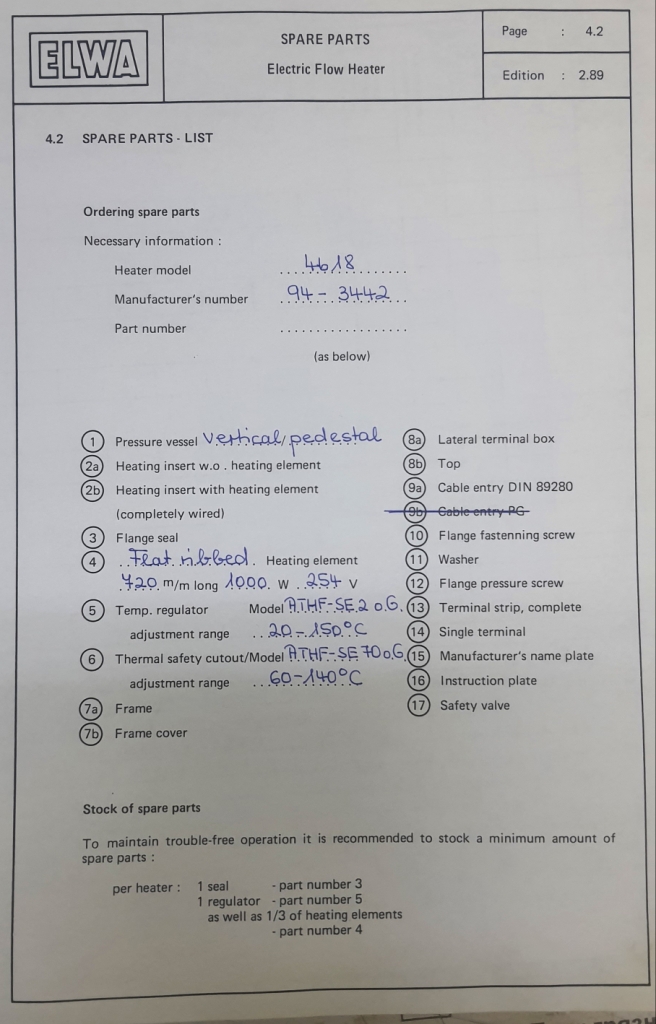 ELWA
SPARE PARTS
Electric Flow Heater
Page : 4.2
Edition : 2.89
4.2 SPARE PARTS - LIST
Ordering spare parts
Necessary information :
Heater model 4618
Manufacturer's number 94 - 3442
Part number ..................
(as below)
1 Pressure vessel vertical/pedestal
2a Heating insert w.o . heating element
2b Heating insert with heating element
(completely wired)
3 Flange seal
4 Flat ribbed. Heating element
720 m/m long 1000 W 254 V
5 Temp. regulator Model ATHF-SE.2 o.G.
adjustment range 20-150°C
6 Thermal safety cutout/Model ATHF-SE 70 o.G.
adjustment range 60-140°C
7a Frame
7b Frame cover
8a Lateral terminal box
8b Top
9a Cable entry DIN 89280
9b Cable entry PG
10 Flange fastenning screw
11 Washer
12 Flange pressure screw
13 Terminal strip, complete
14 Single terminal
15 Manufacturer's name plate
16 Instruction plate
17 Safety valve
Stock of spare parts
To maintain trouble-free operation it is recommended to stock a minimum amount of
spare parts :
per heater : 1 seal - part number 3
1 regulator - part number 5
as well as 1/3 of heating elements
- part number 4